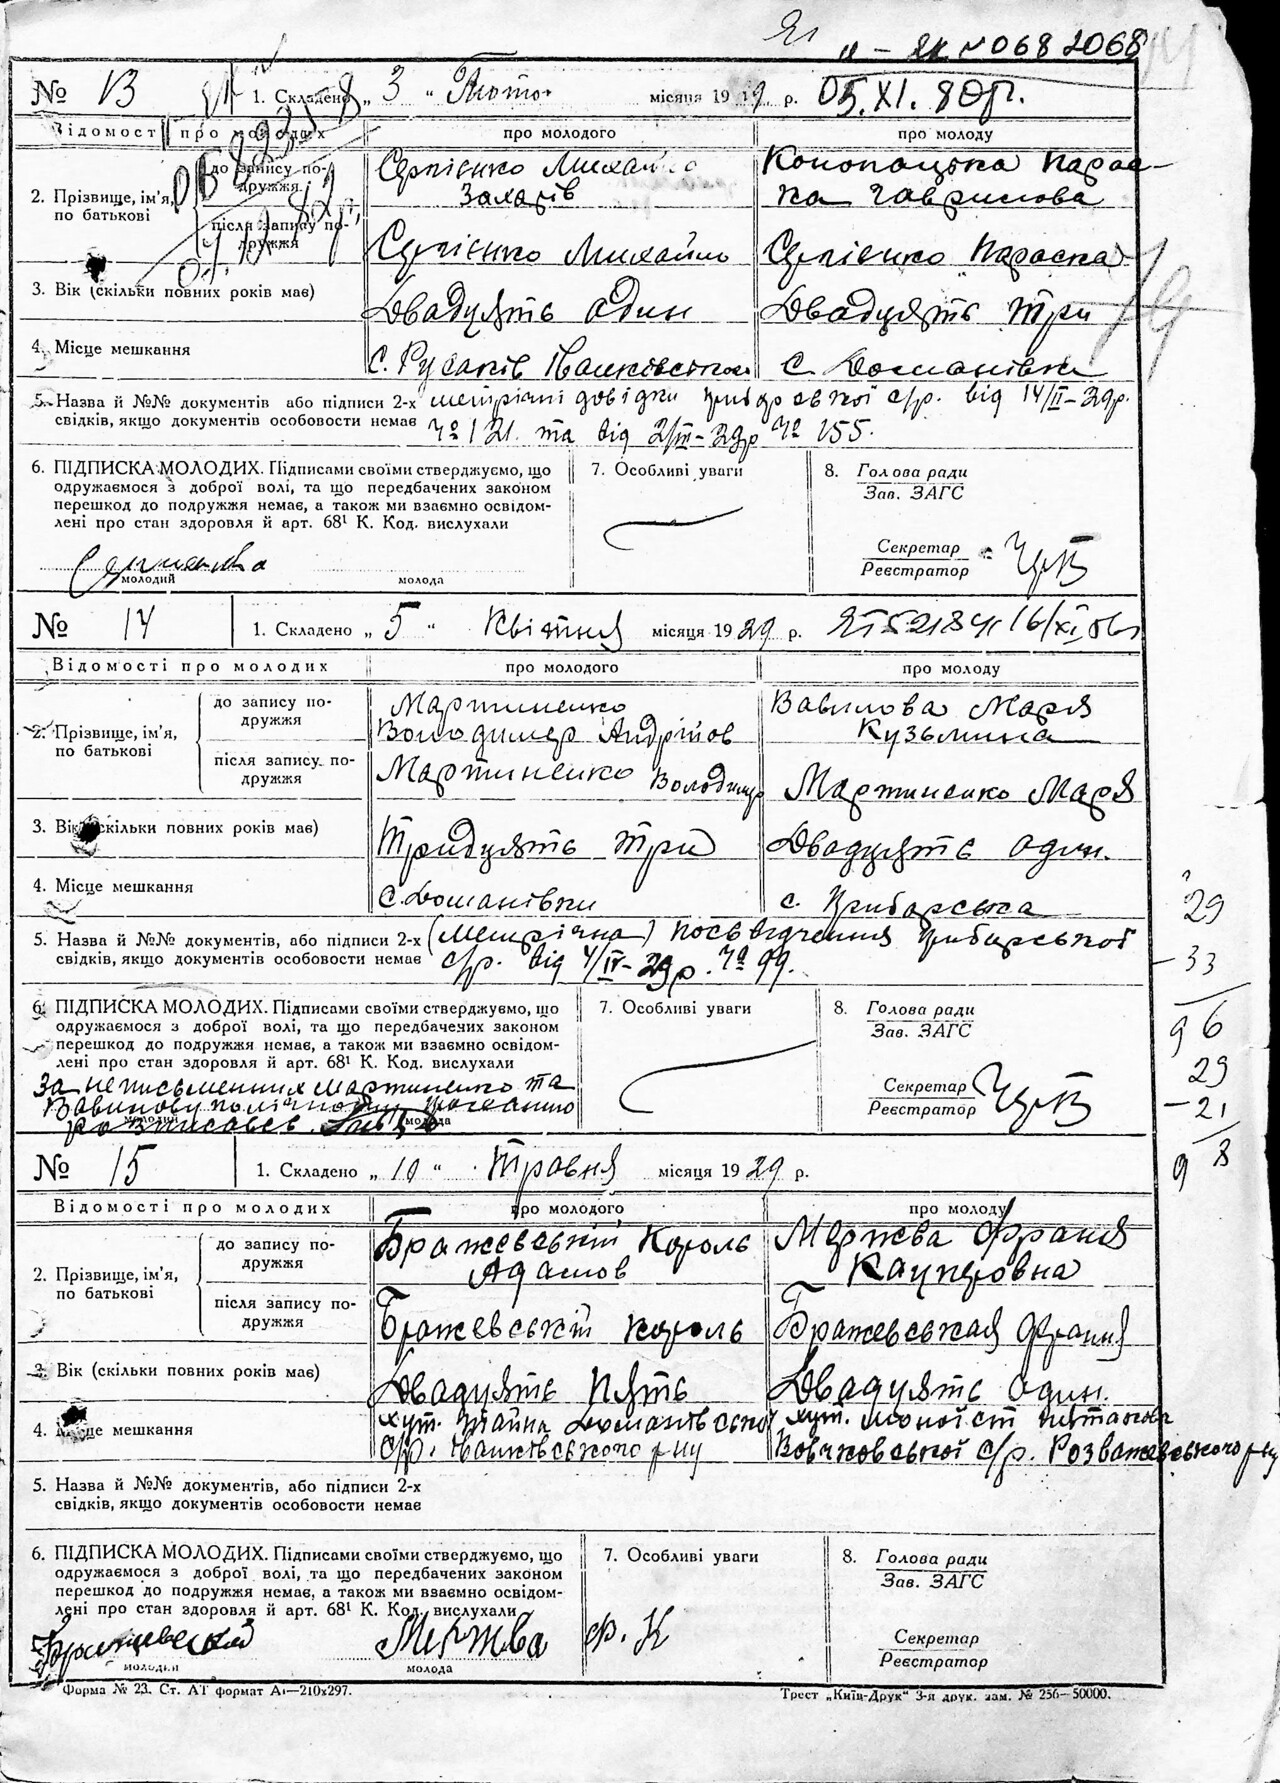 № 13 1. Складено „ 3 “ місяця 1929 р. 05.XI.80р.
Відомості про молодих про молодого про молоду
2. Прізвище, ім'я, по батькові
до запису по-дружжя Сергієнко Михайло Захарів Конопацька Парас-ка Гаврилова
після запису по-дружжя Сергієнко Михайло Сергієнко Параска
3. Вік (скільки повних років має) Двадцять один Двадцять три
4. Місце мешкання с. Русаків с. Доманівка
5. Назва й №№ документів або підписи 2-х метрічні довідки с/р. від 14/II-29р.
свідків, якщо документів особовости немає № 121. та від 2/III-29р № 155.
6. ПІДПИСКА МОЛОДИХ. Підписами своїми стверджуємо, що 7. Особливі уваги 8. Голова ради
одружаємося з доброї волі, та що передбачених законом Зав. ЗАГС
перешкод до подружжя немає, а також ми взаємно освідом-
лені про стан здоров'я й арт. 68¹ К. Код. вислухали Секретар
Реєстратор
молодий молода
№ 14 1. Складено „ 5 “ Квітня місяця 1929 р.
Відомості про молодих про молодого про молоду
2. Прізвище, ім'я, по батькові
до запису по-дружжя Мартиненко Володимер Андріїов Вавилова Марія Кузьмина
після запису по-дружжя Мартиненко Володимер Мартиненко Марія
3. Вік (скільки повних років має) Тридцять три Двадцять один.
4. Місце мешкання с. Доманівки с. Прибарська
29
5. Назва й №№ документів, або підписи 2-х (Метрічна) посвідчення Прибарської
свідків, якщо документів особовости немає с/р. від 4/IV-29р. № 99.
- 33
6. ПІДПИСКА МОЛОДИХ. Підписами своїми стверджуємо, що 7. Особливі уваги 8. Голова ради
одружаємося з доброї волі, та що передбачених законом Зав. ЗАГС
96
перешкод до подружжя немає, а також ми взаємно освідом-
лені про стан здоров'я й арт. 68¹ К. Код. вислухали
29
За неписьменних Мартиненко та Секретар
Вавилову Реєстратор
- 21
розписавсь
молодий молода
98
№ 15 1. Складено „ 10 “ Травня місяця 1929 р.
Відомості про молодих про молодого про молоду
2. Прізвище, ім'я, по батькові
до запису по-дружжя Бражевський Король Адамов Мержва Франя Кацперовна
після запису по-дружжя Бражевській Король Бражевськая Франя
3. Вік (скільки повних років має) Двадцять пять Двадцять один.
4. Місце мешкання хут. Доманівської хут.
с/р. р-ну Вовчковської с/р. Розважевського р-ну
5. Назва й №№ документів, або підписи 2-х
свідків, якщо документів особовости немає
6. ПІДПИСКА МОЛОДИХ. Підписами своїми стверджуємо, що 7. Особливі уваги 8. Голова ради
одружаємося з доброї волі, та що передбачених законом Зав. ЗАГС
перешкод до подружжя немає, а також ми взаємно освідом-
лені про стан здоров'я й арт. 68¹ К. Код. вислухали
Бражевский Мержва Ф. К Секретар
молодий молода Реєстратор
Форма № 23. Ст. АТ формат А₁—210х297. Трест „Київ-Друк“ 3-я друк. зам. № 256—50000.